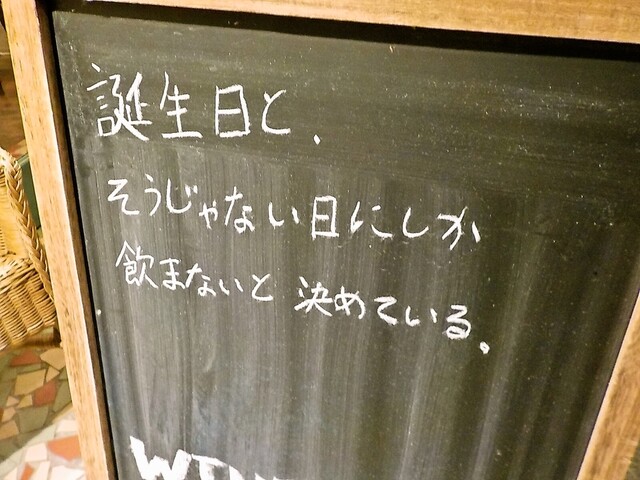 誕生日と、
そうじゃない日にしか
飲まないと決めている。